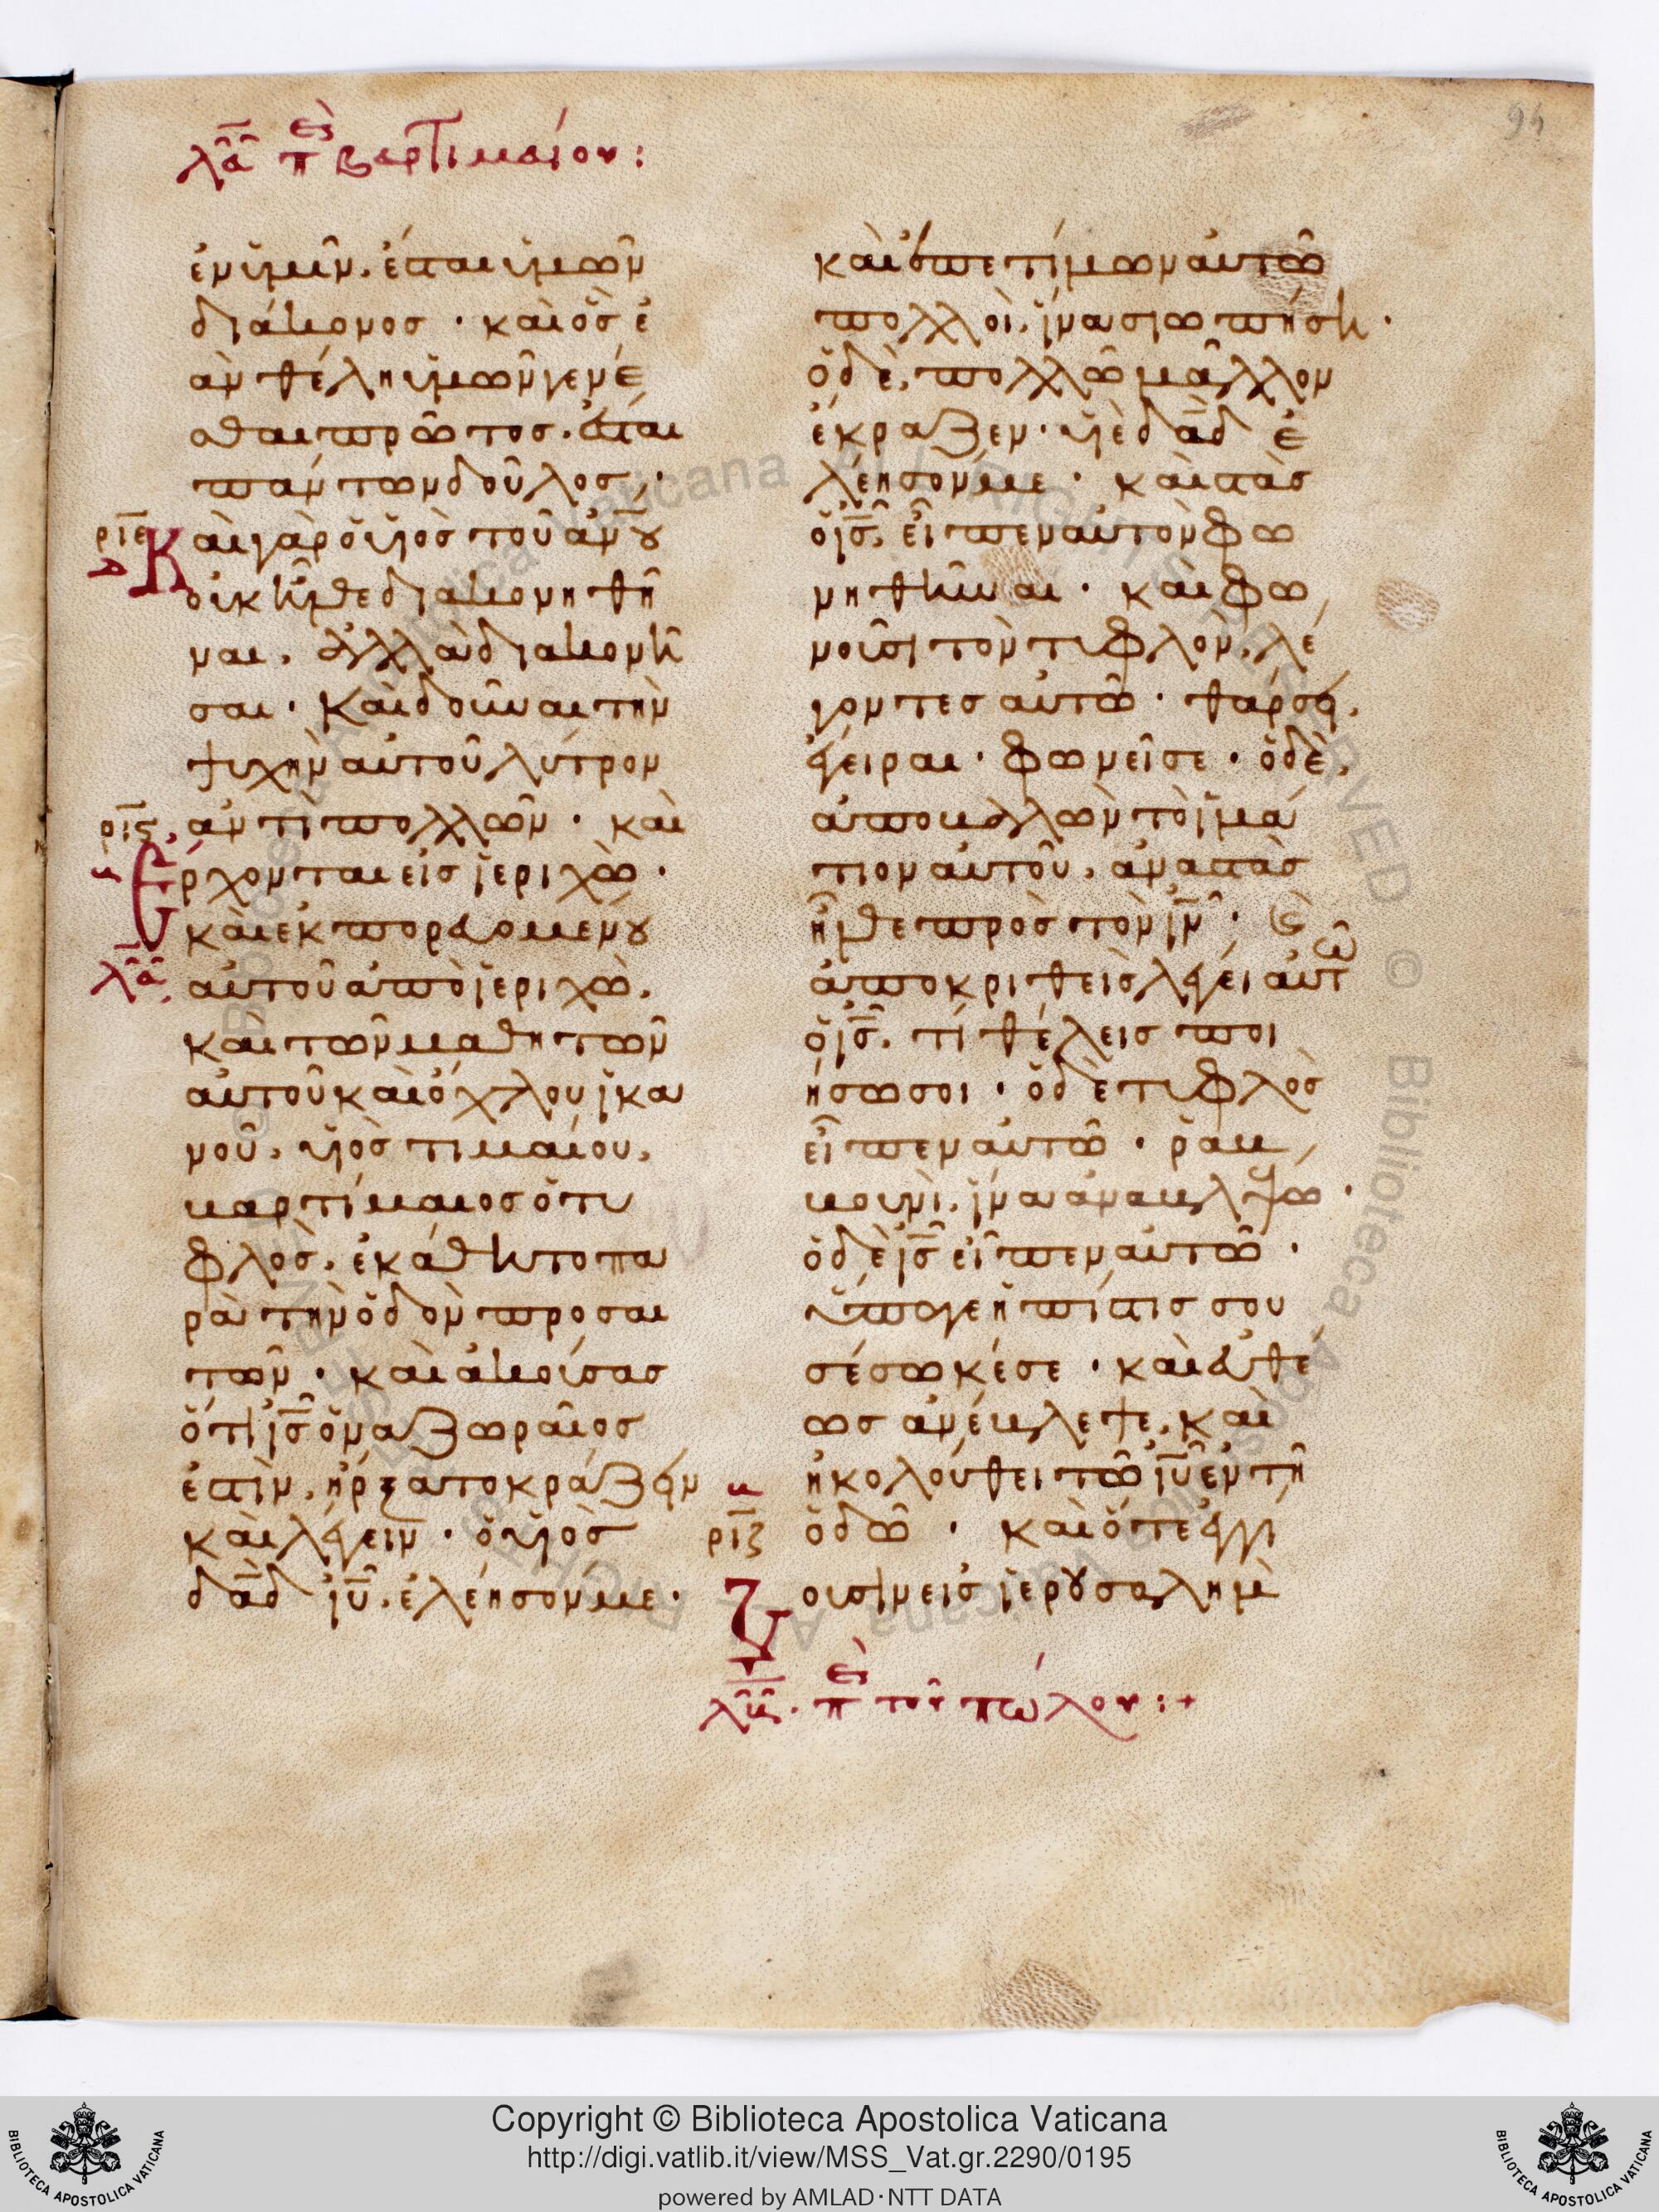 94
λ̅α̅ πὲ βαρτιμαίου:
ἐν ὑμῖν. ἔσται ὑμῶν
διάκονος · καὶ ὃς ἐ
ὰν θέλη ὑμῶν γενέ
σθαι πρῶτος. ἔσται
πάντων δοῦλος ·
ρι̅ε̅
Καὶ γὰρ ὁ υἱὸς τοῦ ἀν̅ου
οὐκ ἦλθε διακονηθῆ
ναι. ἀλλὰ διακονῆ
σαι · καὶ δοῦναι τὴν
ψυχὴν αὐτοῦ λύτρον
ρι̅ϛ̅
ἀντὶ πολλῶν · καὶ
Ἔρχονται εἰς ἱεριχὼ ·
καὶ ἐκπορευομένου
λ̅α̅
αὐτοῦ ἀπὸ ἱεριχὼ.
καὶ τῶν μαθητῶν
αὐτοῦ καὶ ὄχλου ἱκα
νοῦ. υἱὸς τιμαίου.
βαρτίμαιος ὁ τυ
φλὸς. ἐκάθητο πα
ρὰ τὴν ὁδὸν προσαι
τῶν · καὶ ἀκούσας
ὅτι ἰ̅ς̅ ὁ ναζωραῖος
ἐστὶν. ἤρξατο κράζειν
καὶ λέγειν · ὁ υἱὸς
δα̅δ ἰ̅υ̅. ἐλέησόν με ·
καὶ ἐπετίμων αὐτῶ
πολλοὶ. ἵνα σιωπήση ·
ὁ δὲ. πολλῶ μᾶλλον
ἔκραζεν · υἱὲ δα̅δ ἐ
λέησόν με · καὶ στὰς
ὁ ἰ̅ς̅. εἶπεν αὐτὸν φω
νηθῆναι · καὶ φω
νοῦσι τὸν τυφλὸν. λέ
γοντες αὐτῶ · θάρσει.
ἔγειραι · φωνεῖ σε · ὁ δὲ.
ἀποβαλὼν τὸ ἱμά
τιον αὐτοῦ. ἀναστὰς
ἦλθε πρὸς τὸν ἰ̅ν̅ · καὶ
ἀποκριθεὶς λέγει αὐτῶ
ὁ ἰ̅ς̅. τί θέλεις ποι
ήσω σοι · ὁ δὲ τυφλὸς
εἶπεν αὐτῶ · ῥαβ
βουνὶ. ἵνα ἀναβλέψω ·
ὁ δὲ ἰ̅ς̅ εἶπεν αὐτῶ ·
ὕπαγε ἡ πίστις σου
σέσωκέ σε · καὶ εὐθέ
ως ἀνέβλεψε. καὶ
ἠκολούθει τῶ ἰ̅υ̅ ἐν τῆ
ρι̅ζ̅
ὁδῶ · καὶ ὅτε ἐγγί
ζουσιν εἰς ἱερουσαλὴμ
λ̅β̅. πὲ τοῦ πώλου:+
Copyright © Biblioteca Apostolica Vaticana
http://digi.vatlib.it/view/MSS_Vat.gr.2290/0195
powered by AMLAD·NTT DATA
BIBLIOTECA APOSTOLICA VATICANA
BIBLIOTECA APOSTOLICA VATICANA